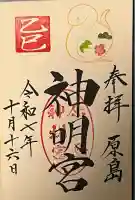 奉拝
原島
神明宮
令和七年
十月十六日
乙巳